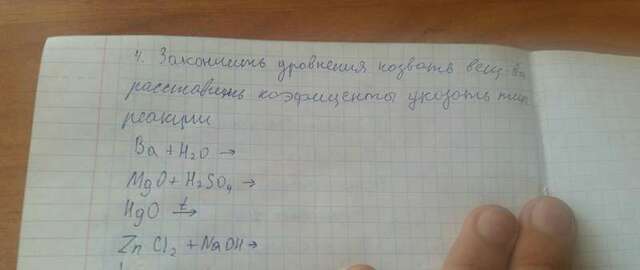 4. Закончить уровнения назвать вещ-ва
расставить коэфиценты указать тип
реакции
Ba + H₂O →
MgO + H₂SO₄ →
HgO t→
Zn Cl₂ + NaOH →